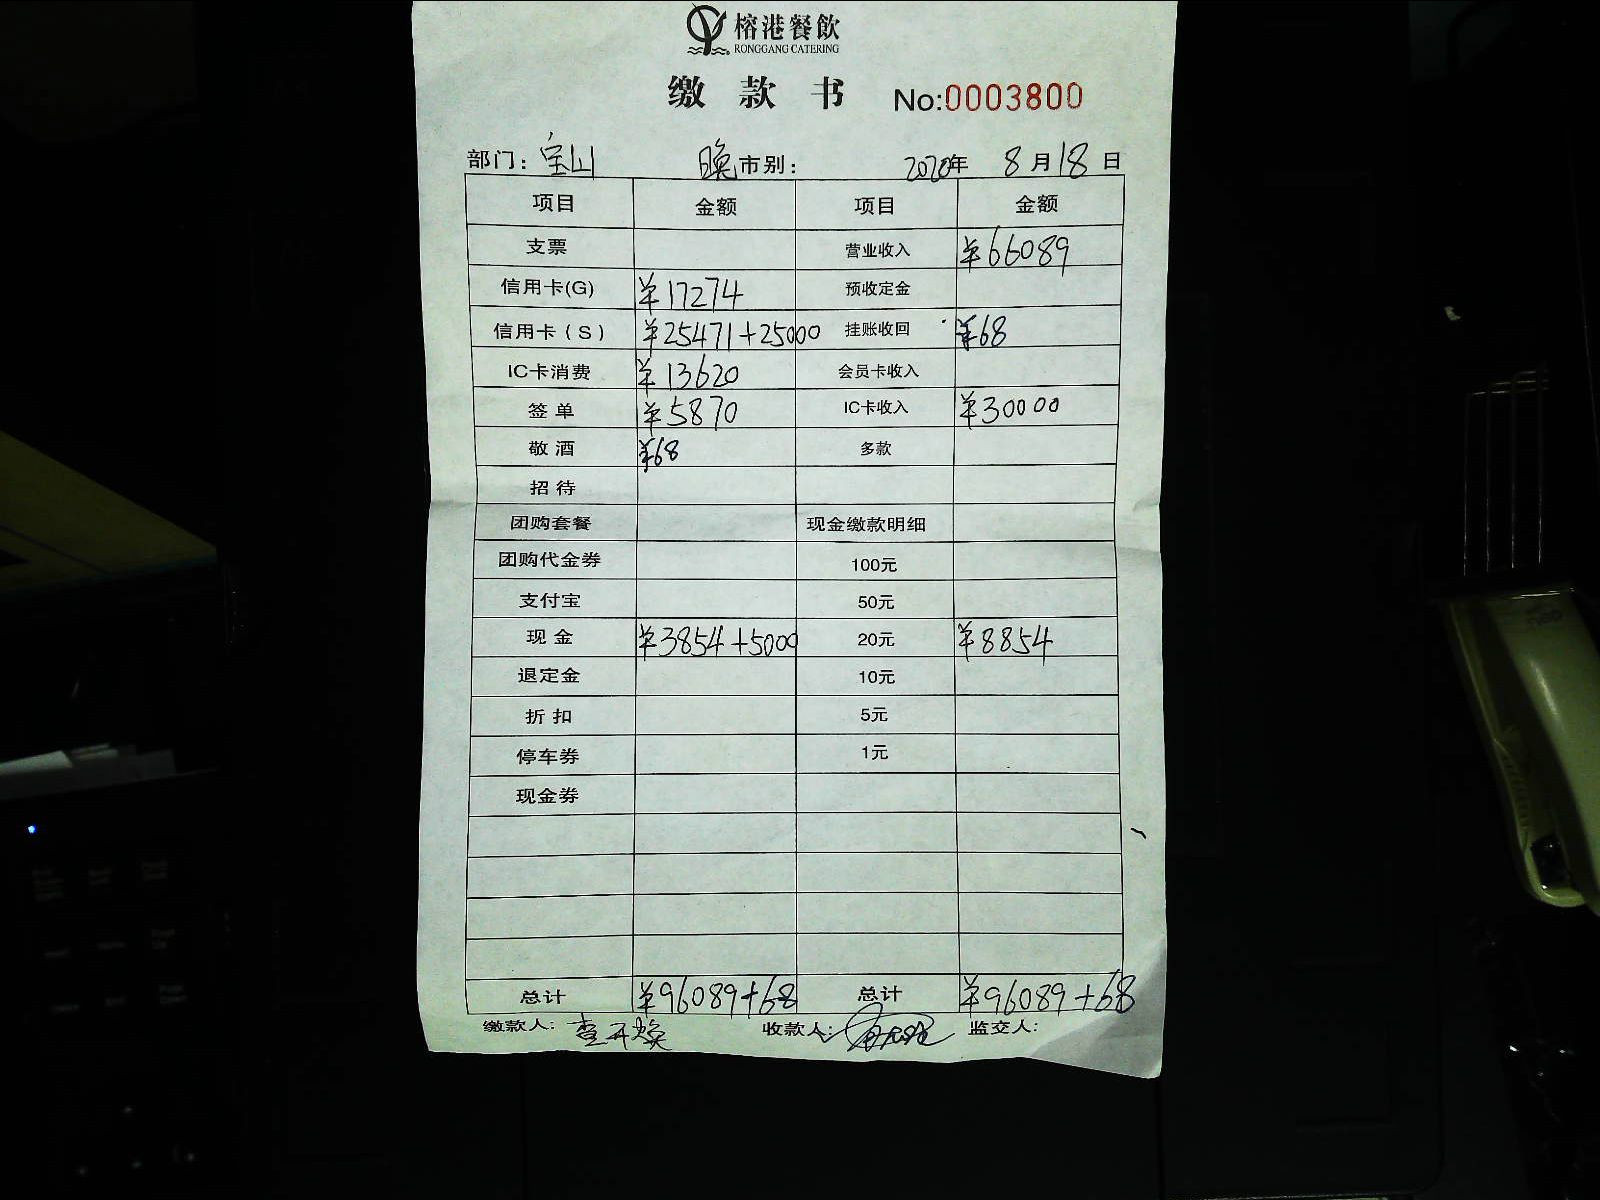 榕港餐飲
RONGGANG CATERING
缴款书 No:0003800
部门: 宝山 晚市别: 2020年 8月18日
项目 金额 项目 金额
支票 营业收入 ¥66089
信用卡(G) ¥17274 预收定金
信用卡(S) ¥25471+25000 挂账收回 ¥68
IC卡消费 ¥13620 会员卡收入
签单 ¥5870 IC卡收入 ¥30000
敬酒 ¥68 多款
招待
团购套餐 现金缴款明细
团购代金券 100元
支付宝 50元
现金 ¥3854+5000 20元 ¥8854
退定金 10元
折扣 5元
停车券 1元
现金券
总计 ¥96089+68 总计 ¥96089+68
缴款人: 收款人: 监交人: